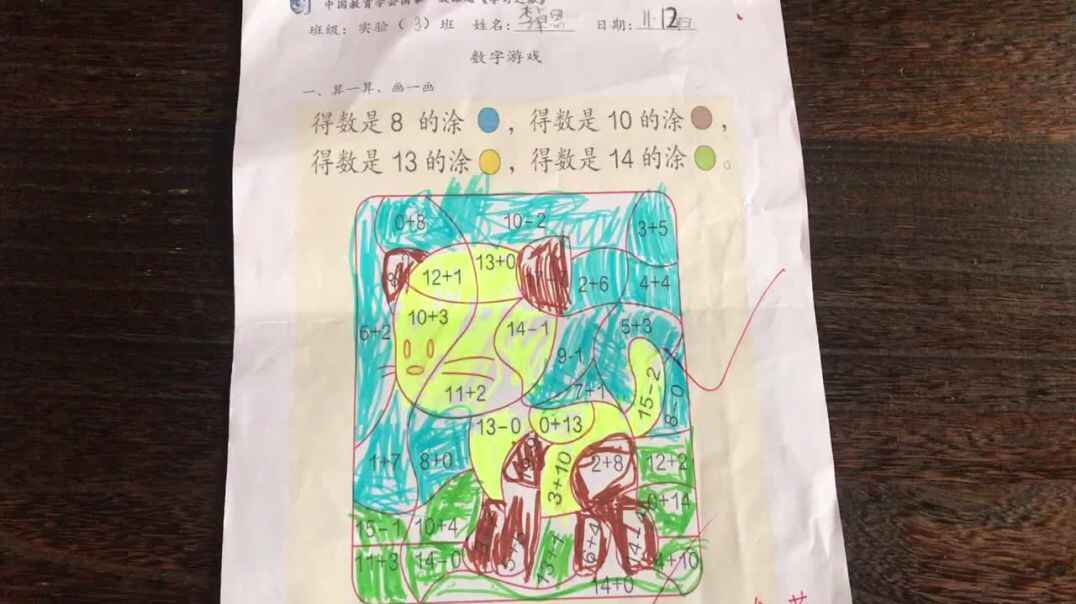 班级: 实验 (3) 班 姓名: 日期: 11.12
数字游戏
一、算一算、画一画
得数是 8 的涂 , 得数是 10 的涂 ,
得数是 13 的涂 , 得数是 14 的涂 。
0+8 10-2 3+5
12+1 13+0 2+6 4+4
6+2 10+3 14-1 5+3
9-1
11+2 7+1 15-2 8-0
13-0 0+13
1+7 8+0 3+10 2+8 12+2
0+14
15-1 10+4
11+3 14-0 13+1 6+4 4+10
14+0